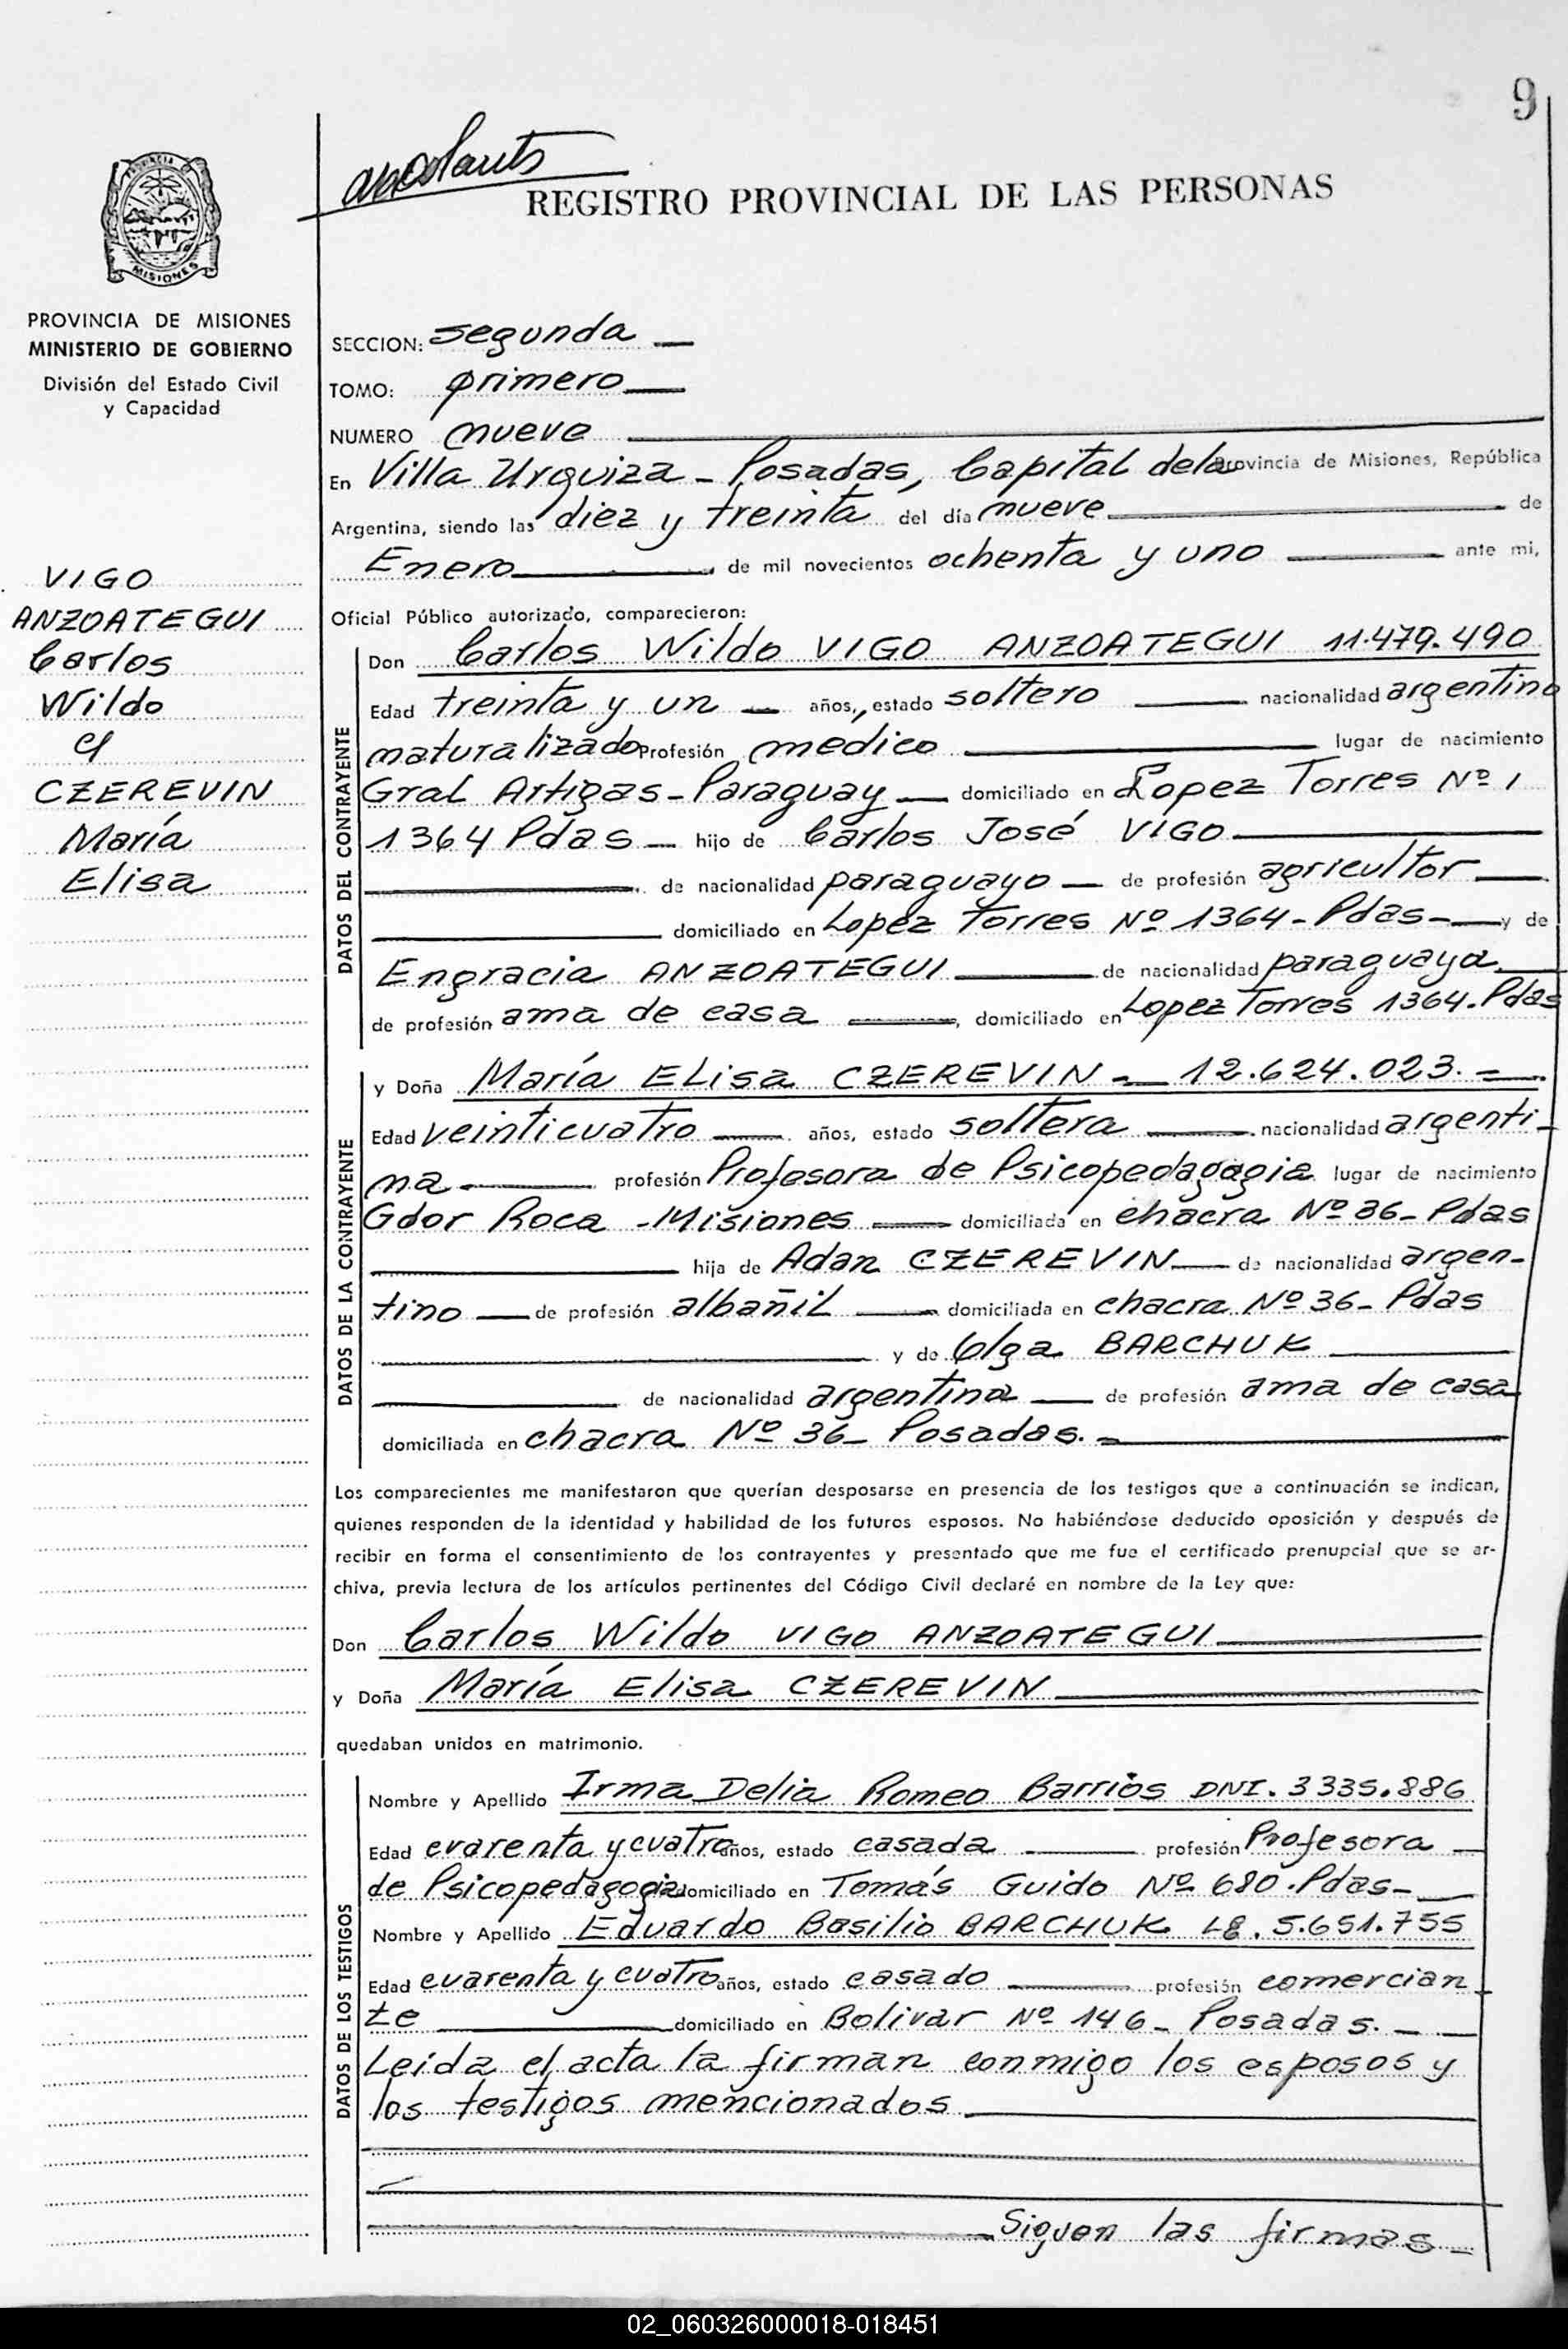 9
REGISTRO PROVINCIAL DE LAS PERSONAS
PROVINCIA
MISIONES
PROVINCIA DE MISIONES
MINISTERIO DE GOBIERNO
División del Estado Civil
y Capacidad
VIGO
ANZOATEGUI
Carlos
Wildo
c/
CZEREVIN
María
Elisa
SECCION: segunda
TOMO: primero
NUMERO nueve
En Villa Urquiza - Posadas, Capital de la Provincia de Misiones, República
Argentina, siendo las diez y treinta del día nueve de
Enero de mil novecientos ochenta y uno ante mi,
Oficial Público autorizado, comparecieron:
DATOS DEL CONTRAYENTE
Don Carlos Wildo VIGO ANZOATEGUI 11.479.490
Edad treinta y un años, estado soltero nacionalidad argentino
naturalizado Profesión medico lugar de nacimiento
Gral Artigas - Paraguay domiciliado en Lopez Torres Nº 1
1364 Pdas hijo de Carlos José VIGO
de nacionalidad paraguayo de profesión agricultor
domiciliado en Lopez Torres Nº 1364 - Pdas - y de
Engracia ANZOATEGUI de nacionalidad paraguaya
de profesión ama de casa, domiciliado en Lopez Torres 1364. Pdas
DATOS DE LA CONTRAYENTE
y Doña María ELisa CZEREVIN - 12.624.023. -
Edad veinticuatro años, estado soltera nacionalidad argenti-
na profesión Profesora de Psicopedagogia lugar de nacimiento
Gdor Roca - Misiones domiciliada en chacra Nº 36 - Pdas
hija de Adan CZEREVIN de nacionalidad argen-
tino de profesión albañil domiciliada en chacra Nº 36 - Pdas
y de Olga BARCHUK
de nacionalidad argentina de profesión ama de casa
domiciliada en chacra Nº 36 - Posadas. -
Los comparecientes me manifestaron que querían desposarse en presencia de los testigos que a continuación se indican,
quienes responden de la identidad y habilidad de los futuros esposos. No habiéndose deducido oposición y después de
recibir en forma el consentimiento de los contrayentes y presentado que me fue el certificado prenupcial que se ar-
chiva, previa lectura de los artículos pertinentes del Código Civil declaré en nombre de la Ley que:
Don Carlos Wildo VIGO ANZOATEGUI
y Doña María Elisa CZEREVIN
quedaban unidos en matrimonio.
DATOS DE LOS TESTIGOS
Nombre y Apellido Irma Delia Romeo Barrios DNI. 3335.886
Edad cuarenta y cuatro años, estado casada profesión Profesora
de Psicopedagogia domiciliado en Tomás Guido Nº 680. Pdas -
Nombre y Apellido Eduardo Basilio BARCHUK LE. 5.651.755
Edad cuarenta y cuatro años, estado casado profesión comercian
te domiciliado en Bolivar Nº 146 - Posadas. -
Leida el acta la firman conmigo los esposos y
los testigos mencionados
Siguen las firmas -
02_060326000018-018451